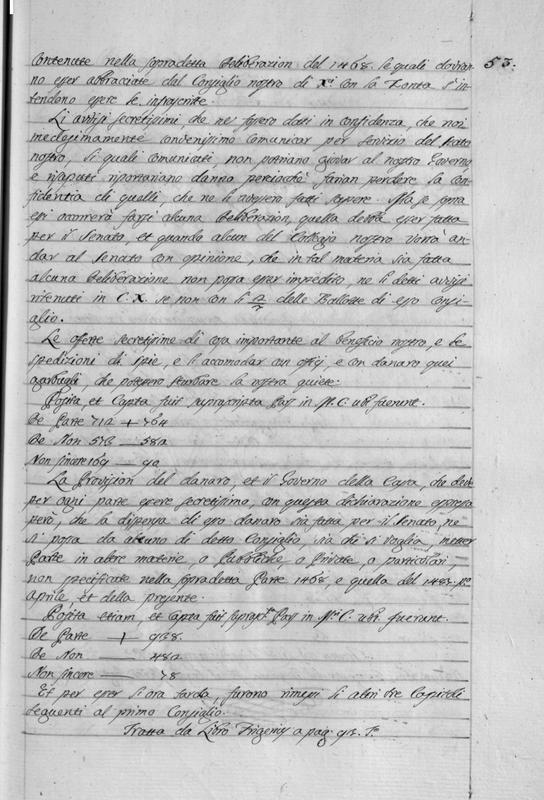 53:
contenute nella sopradetta deliberazion del 1468. le quali dovran
no esser abbracciate dal Consiglio nostro di X.ci con la Zonta s'in
tendono essere le infrascritte.
Li avvisi secretissimi che ne fossero datti in confidenza, che non
medesimamente convenissimo comunicar per servizio del stato
nostro, li quali comunicati, non potriano giovar al nostro Governo
e riportariano danno perciocchè farian perdere la con
fidentia di quelli, che ne li avesero fatti sapere. Ma se sopra
essi occorrerà farsi alcuna deliberazion, quella debba esser fatta
per il Senato, et quando alcun del Collegio nostro vorrà an
dar al Senato con opinione, che in tal materia sia fatta
alcuna deliberazione non possa esser impedito, ne li detti avvisi
ritenuti in C. X. se non con li 2/3 delle Ballotte di esso Consi
glio.
Le offerte secretissime di cosa importante al beneficio nostro, e le
spedizioni di spie, e li accomodar con offizj e con danaro quei
garbugli, che potessero sturbare la nostra quiete:
Posita, et Capta fuit suprascripta Pars in M. C. ubi fuerunt.
De Parte 712 + 764
De Non 573 - 582
Non sincere 169 - 92
La Provision del danaro, et il Governo della Cassa, che deve
per ogni parte essere secretissimo, con questa dichiarazione espressa
però, che la dispensa di esso danaro sia fatta per il Senato, ne
si possa da alcuno di detto Consiglio, sia chi si voglia, metter
Parte in altre materie, o Pubbliche, o Private, o particolari,
non specificate nella sopradetta Parte 1468, e quella del 1487. p.mo
aprile, et della presente.
Posita etiam et Capta fuit suprascripta Pars in M. C. ubi fuerunt.
De Parte + 938.
De Non 482
Non sincere 78
Et per esser l'ora tarda, furono rimessi li altri tre Capitoli
seguenti al primo Consiglio.
Tratta da Libro Frigerius a pag. 93. t.o